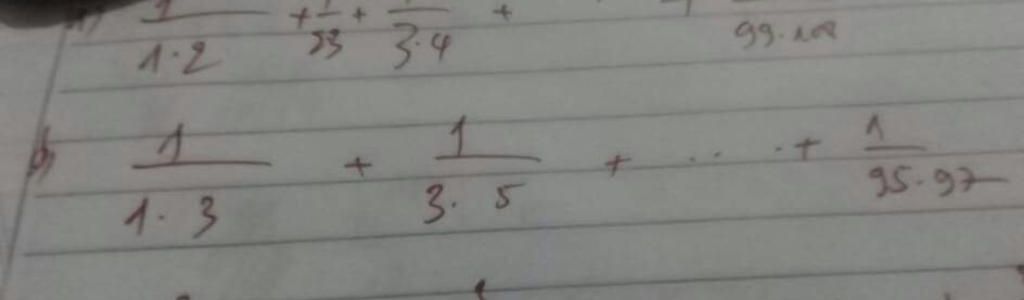 1/1·2 + 1/23 + 1/3·4 + + 99·100
b) 1/1·3 + 1/3·5 + ... + 1/95·97